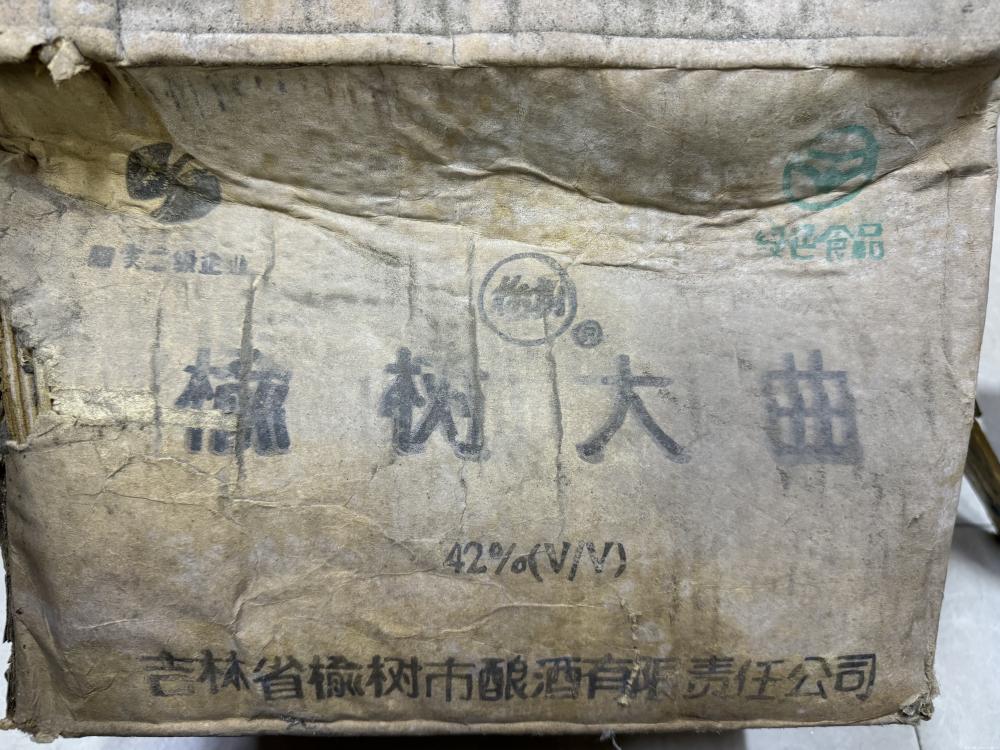 国家二级企业
绿色食品
榆树
®
榆树大曲
42%(V/V)
吉林省榆树市酿酒有限责任公司